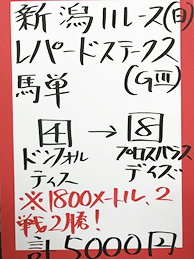 新潟11レース(日)
レパードステークス
馬単 (GIII)
4 → 8
ドンフォルティス プロスパラスデイズ
※1800メートル、2
戦2勝!
計5000円